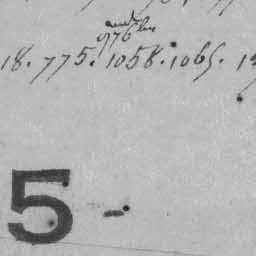 976
18. 775. 1058. 1065. 1
5 -